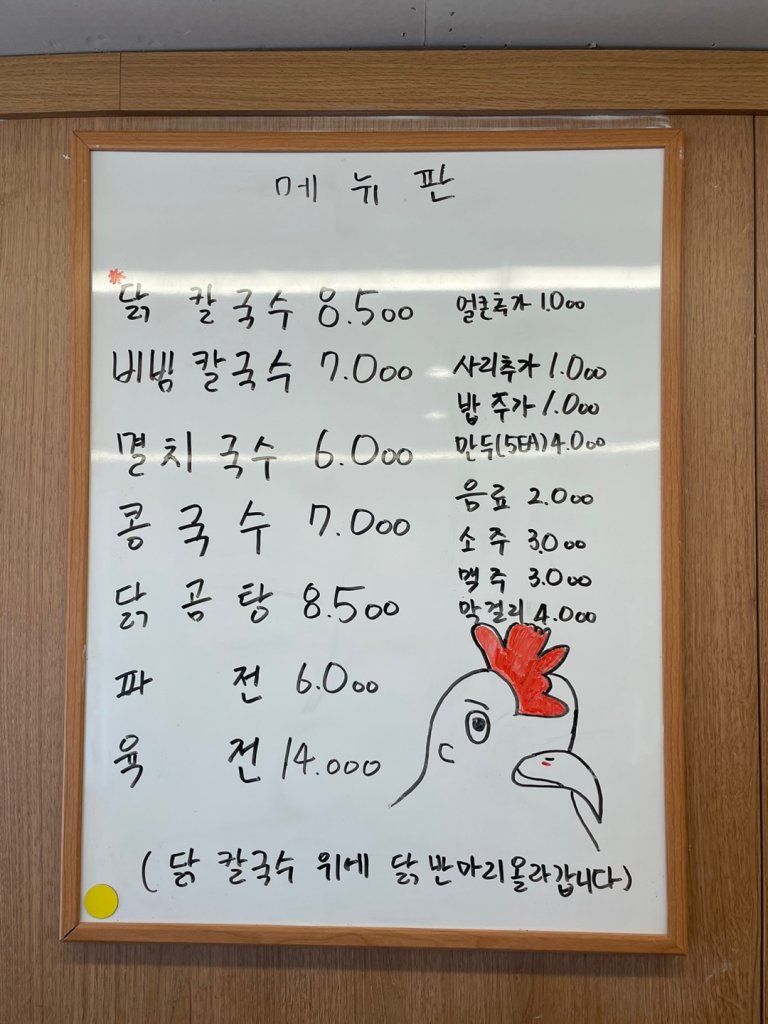 메뉴판
* 닭 칼국수 8.500
비빔 칼국수 7.000
멸치 국수 6.000
콩 국 수 7.000
닭 곰 탕 8.500
파 전 6.000
육 전 14.000
얼큰추가 1.000
사리추가 1.000
밥 추가 1.000
만두(5EA) 4.000
음료 2.000
소주 3.000
맥주 3.000
막걸리 4.000
(닭 칼국수 위에 닭 반마리 올라갑니다)